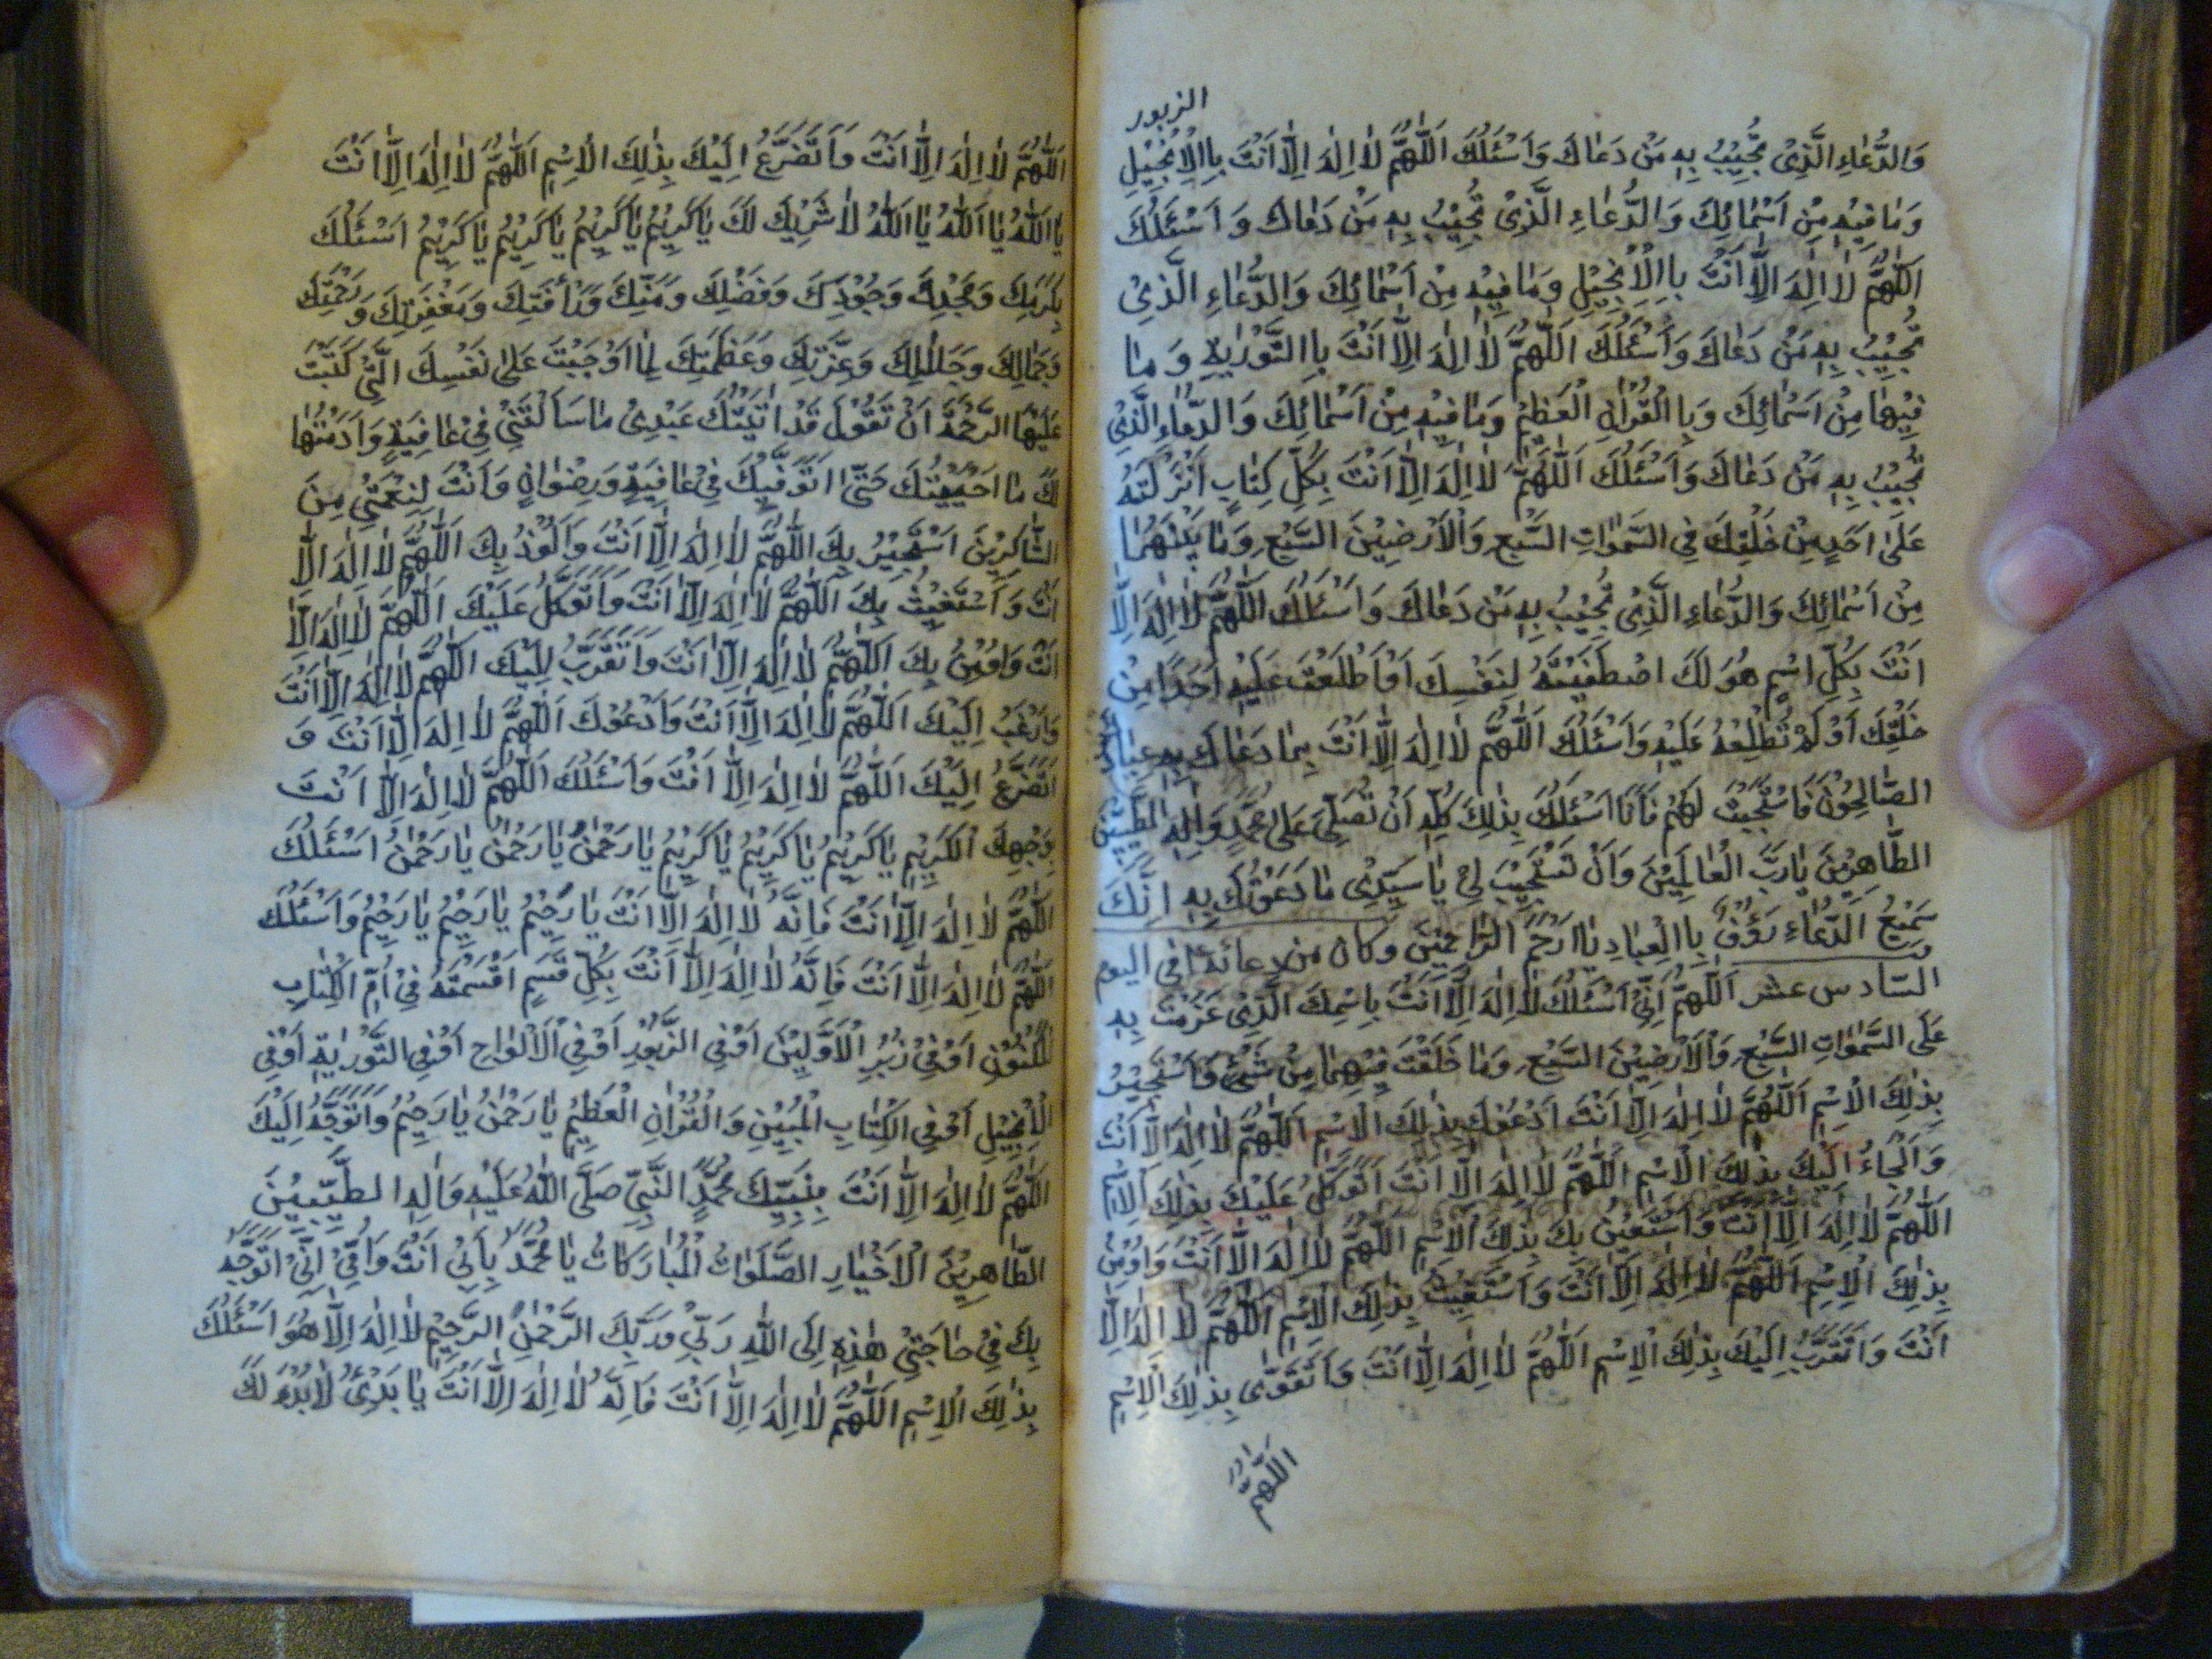 الزبور
وَالدُّعٰاءِ الَّذِیْ تُجِیْبُ بِهِ مَنْ دَعٰاكَ وَاَسْئَلُكَ اَللّٰهُمَّ لٰا اِلٰهَ اِلَّا اَنْتَ بِاالْاِنْجِیْلِ
وَمٰا فِیْهِ مِنْ اَسْمٰائِكَ وَالدُّعٰاءِ الَّذِیْ تُجِیْبُ بِهِ مَنْ دَعٰاكَ وَ اَسْئَلُكَ
اَللّٰهُمَّ لٰا اِلٰهَ اِلَّا اَنْتَ بِاالْاِنْجِیْلِ وَمٰا فِیْهِ مِنْ اَسْمٰائِكَ وَالدُّعٰاءِ الَّذِیْ
تُجِیْبُ بِهِ مَنْ دَعٰاكَ وَاَسْئَلُكَ اَللّٰهُمَّ لٰا اِلٰهَ اِلَّا اَنْتَ بِاالتَّوْرٰیةِ وَ مٰا
فِیْهٰا مِنْ اَسْمٰائِكَ وَبِاالْقُرْاٰنِ الْعَظِیْمِ وَمٰا فِیْهِ مِنْ اَسْمٰائِكَ وَالدُّعٰاءِ الَّذِیْ
تُجِیْبُ بِهِ مَنْ دَعٰاكَ وَاَسْئَلُكَ اَللّٰهُمَّ لٰا اِلٰهَ اِلَّا اَنْتَ بِكُلِّ كِتٰابٍ اَنْزَلْتَهُ
عَلٰی اَحَدٍ مِنْ خَلْقِكَ فِی السَّمٰوٰاتِ السَّبْعِ وَالْاَرْضِیْنَ السَّبْعِ وَمٰا بَیْنَهُمٰا
مِنْ اَسْمٰائِكَ وَالدُّعٰاءِ الَّذِیْ تُجِیْبُ بِهِ مَنْ دَعٰاكَ وَاَسْئَلُكَ اَللّٰهُمَّ لٰا اِلٰهَ اِلَّا
اَنْتَ بِكُلِّ اسْمٍ هُوَ لَكَ اصْطَفَیْتَهُ لِنَفْسِكَ اَوْ اَطْلَعْتَ عَلَیْهِ اَحَدًا مِنْ
خَلْقِكَ اَوْ لَمْ تُطْلِعْهُ عَلَیْهِ وَاَسْئَلُكَ اَللّٰهُمَّ لٰا اِلٰهَ اِلَّا اَنْتَ بِمٰا دَعٰاكَ بِهِ عِبٰادُكَ
الصّٰالِحُوْنَ فَاسْتَجَبْتَ لَهُمْ فَاَنَا اَسْئَلُكَ بِذٰلِكَ كُلِّهِ اَنْ تُصَلِّیَ عَلٰی مُحَمَّدٍ وَاٰلِهِ الطَّیِّبِیْنَ
الطّٰاهِرِیْنَ یٰا رَبَّ الْعٰالَمِیْنَ وَاَنْ تَسْتَجِیْبَ لِیْ یٰا سَیِّدِیْ مٰا دَعَوْتُكَ بِهِ اِنَّكَ
سَمِیْعُ الدُّعٰاءِ رَؤُفٌ بِاالْعِبٰادِ یٰا اَرْحَمَ الرّٰاحِمِیْنَ وكان من دعائه ؑ فی الیوم
السّادس عشر اَللّٰهُمَّ اِنِّیْ اَسْئَلُكَ لٰا اِلٰهَ اِلَّا اَنْتَ بِاسْمِكَ الَّذِیْ عَزَمْتَ بِهِ
عَلَی السَّمٰوٰاتِ السَّبْعِ وَالْاَرْضِیْنَ السَّبْعِ وَمٰا خَلَقْتَ فِیْهِمٰا مِنْ شَیْءٍ وَاَسْتَجِیْرُ
بِذٰلِكَ الْاِسْمِ اَللّٰهُمَّ لٰا اِلٰهَ اِلَّا اَنْتَ اَدْعُوْكَ بِذٰلِكَ الْاِسْمِ اَللّٰهُمَّ لٰا اِلٰهَ اِلَّا اَنْتَ
وَاَلْجَاءُ اِلَیْكَ بِذٰلِكَ الْاِسْمِ اَللّٰهُمَّ لٰا اِلٰهَ اِلَّا اَنْتَ اَتَوَكَّلُ عَلَیْكَ بِذٰلِكَ الْاِسْمِ
اَللّٰهُمَّ لٰا اِلٰهَ اِلَّا اَنْتَ وَاَسْتَعِیْنُ بِكَ بِذٰلِكَ الْاِسْمِ اَللّٰهُمَّ لٰا اِلٰهَ اِلَّا اَنْتَ وَاُوْمِنُ
بِذٰلِكَ الْاِسْمِ اَللّٰهُمَّ لٰا اِلٰهَ اِلَّا اَنْتَ وَاَسْتَغِیْثُ بِذٰلِكَ الْاِسْمِ اَللّٰهُمَّ لٰا اِلٰهَ اِلَّا
اَنْتَ وَاَتَقَرَّبُ اِلَیْكَ بِذٰلِكَ الْاِسْمِ اَللّٰهُمَّ لٰا اِلٰهَ اِلَّا اَنْتَ وَاَتَقَوّٰی بِذٰلِكَ الْاِسْمِ
اَللّٰهُمَّ
اَللّٰهُمَّ لٰا اِلٰهَ اِلَّا اَنْتَ وَاَتَضَرَّعُ اِلَیْكَ بِذٰلِكَ الْاِسْمِ اَللّٰهُمَّ لٰا اِلٰهَ اِلَّا اَنْتَ
یٰا اَللّٰهُ یٰا اَللّٰهُ یٰا اَللّٰهُ لٰا شَرِیْكَ لَكَ یٰا كَرِیْمُ یٰا كَرِیْمُ یٰا كَرِیْمُ یٰا كَرِیْمُ اَسْئَلُكَ
بِكَرَمِكَ وَمَجْدِكَ وَجُوْدِكَ وَفَضْلِكَ وَمَنِّكَ وَرَأْفَتِكَ وَمَغْفِرَتِكَ وَرَحْمَتِكَ
وَجَمٰالِكَ وَجَلٰالِكَ وَعِزَّتِكَ وَعَظَمَتِكَ لِمٰا اَوْجَبْتَ عَلٰی نَفْسِكَ الَّتِیْ كَتَبْتَ
عَلَیْهَا الرَّحْمَةَ اَنْ تَقُوْلَ قَدْ اٰتَیْتُكَ عَبْدِیْ مٰا سَاَلْتَنِیْ فِیْ عٰافِیَةٍ وَاَدَمْتُهٰا
لَكَ مٰا اَحْیَیْتُكَ حَتّٰی اَتَوَفّٰیكَ فِیْ عٰافِیَةٍ وَرِضْوٰانٍ وَاَنْتَ لِنِعْمَتِیْ مِنَ
الشّٰاكِرِیْنَ اَسْتَجِیْرُ بِكَ اَللّٰهُمَّ لٰا اِلٰهَ اِلَّا اَنْتَ وَاَلُوْذُ بِكَ اَللّٰهُمَّ لٰا اِلٰهَ اِلَّا
اَنْتَ وَاَسْتَغِیْثُ بِكَ اَللّٰهُمَّ لٰا اِلٰهَ اِلَّا اَنْتَ وَاَتَوَكَّلُ عَلَیْكَ اَللّٰهُمَّ لٰا اِلٰهَ اِلَّا
اَنْتَ وَاُوْمِنُ بِكَ اَللّٰهُمَّ لٰا اِلٰهَ اِلَّا اَنْتَ وَاَتَقَرَّبُ اِلَیْكَ اَللّٰهُمَّ لٰا اِلٰهَ اِلَّا اَنْتَ
وَاَرْغَبُ اِلَیْكَ اَللّٰهُمَّ لٰا اِلٰهَ اِلَّا اَنْتَ وَاَدْعُوْكَ اَللّٰهُمَّ لٰا اِلٰهَ اِلَّا اَنْتَ وَ
اَتَضَرَّعُ اِلَیْكَ اَللّٰهُمَّ لٰا اِلٰهَ اِلَّا اَنْتَ وَاَسْئَلُكَ اَللّٰهُمَّ لٰا اِلٰهَ اِلَّا اَنْتَ
بِوَجْهِكَ الْكَرِیْمِ یٰا كَرِیْمُ یٰا كَرِیْمُ یٰا كَرِیْمُ یٰا رَحْمٰنُ یٰا رَحْمٰنُ یٰا رَحْمٰنُ اَسْئَلُكَ
اَللّٰهُمَّ لٰا اِلٰهَ اِلَّا اَنْتَ فَاِنَّهُ لٰا اِلٰهَ اِلَّا اَنْتَ یٰا رَحِیْمُ یٰا رَحِیْمُ یٰا رَحِیْمُ وَاَسْئَلُكَ
اَللّٰهُمَّ لٰا اِلٰهَ اِلَّا اَنْتَ فَاِنَّهُ لٰا اِلٰهَ اِلَّا اَنْتَ بِكُلِّ قَسَمٍ اَقْسَمْتَهُ فِیْ اُمِّ الْكِتٰابِ
الْمَكْنُوْنِ اَوْ فِیْ زُبُرِ الْاَوَّلِیْنَ اَوْ فِی الزَّبُوْرِ اَوْ فِی الْاَلْوٰاحِ اَوْ فِی التَّوْرٰیةِ اَوْ فِی
الْاِنْجِیْلِ اَوْ فِی الْكِتٰابِ الْمُبِیْنِ وَالْقُرْاٰنِ الْعَظِیْمِ یٰا رَحْمٰنُ یٰا رَحِیْمُ وَاَتَوَجَّهُ اِلَیْكَ
اَللّٰهُمَّ لٰا اِلٰهَ اِلَّا اَنْتَ بِنَبِیِّكَ مُحَمَّدٍ النَّبِیِّ صَلَّی اللّٰهُ عَلَیْهِ وَاٰلِهِ الطَّیِّبِیْنَ
الطّٰاهِرِیْنَ الْاَخْیٰارِ الصَّلَوٰاتُ الْمُبٰارَكٰاتُ یٰا مُحَمَّدُ بِاَبِیْ اَنْتَ وَاُمِّیْ اِنِّیْ اَتَوَجَّهُ
بِكَ فِیْ حٰاجَتِیْ هٰذِهِ اِلَی اللّٰهِ رَبِّیْ وَرَبِّكَ الرَّحْمٰنِ الرَّحِیْمِ لٰا اِلٰهَ اِلَّا هُوَ اَسْئَلُكَ
بِذٰلِكَ الْاِسْمِ اَللّٰهُمَّ لٰا اِلٰهَ اِلَّا اَنْتَ فَاِنَّهُ لٰا اِلٰهَ اِلَّا اَنْتَ یٰا بَدِیْءُ لٰا بُدْءَ لَكَ